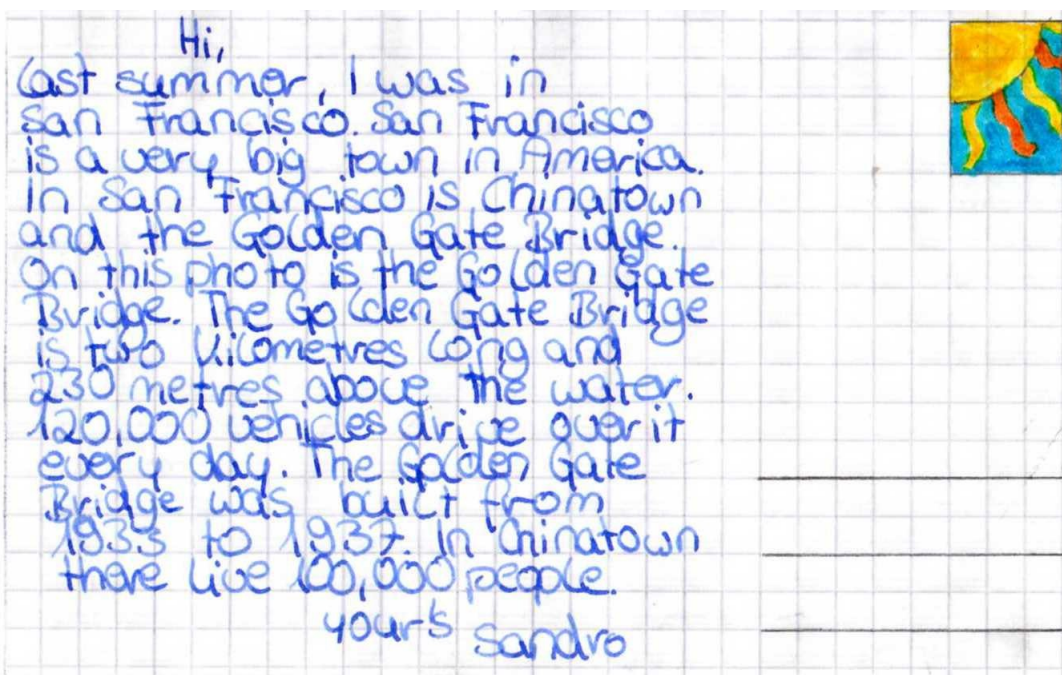 Hi,
Last summer, I was in
San Francisco. San Francisco
is a very big town in America.
In San Francisco is Chinatown
and the Golden Gate Bridge.
On this photo is the Golden Gate
Bridge. The Golden Gate Bridge
is two kilometres long and
230 metres above the water.
120,000 vehicles drive over it
every day. The Golden Gate
Bridge was built from
1933 to 1937. In Chinatown
there live 100,000 people.
your's Sandro